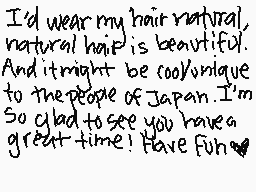 I'd wear my hair natural,
natural hair is beautiful.
And it might be cool/unique
to the people of Japan. I'm
So glad to see you have a
great time! Have Fun♥